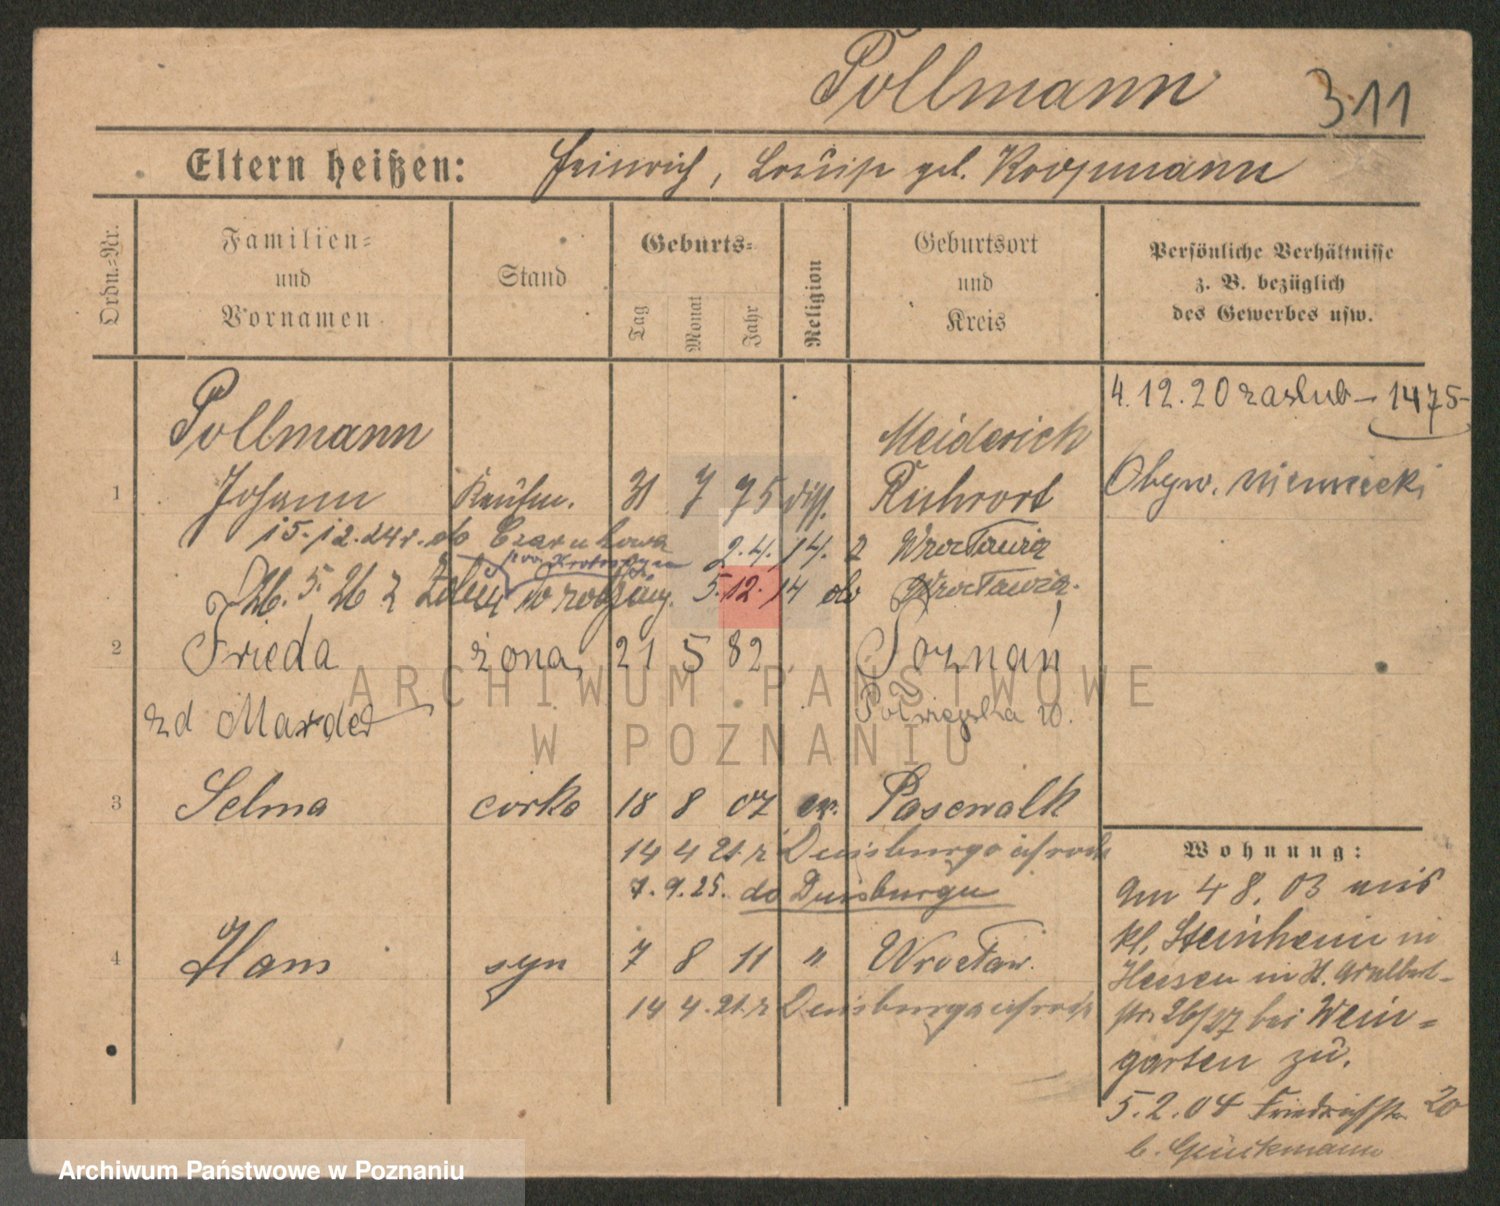 Pollmann 311
Eltern heißen: Heinrich, Louise geb. Koopmann
Ordn.-Nr.
Familien- und Vornamen
Stand
Geburts-
Tag Monat Jahr
Religion
Geburtsort und Kreis
Persönliche Verhältnisse
z. B. bezüglich
des Gewerbes usw.
4.12.20 zaslub – 1475-
Pollmann Meiderich
1 Johann Kaufm. 31 7 75 diss. Ruhrort
Obyw. niemiecki
15.12.24 r. do 2.4.14. z Wrocławia
26. 5. 26 z 5.12.14 do Wrocławia.
2 Frieda żona, 21 5 82 Poznań
zd Marder
3 Selma córka 18 8 07 ew. Pasewalk
14 4 21 z Duisburga
7.9.25. do Duisburgu
4 Hans syn 7 8 11 " Wrocław.
14 4. 21. z Duisburga
Wohnung:
am 4 8. 03 aus
Kl. Steinheim in
Hessen in
str. 26/27 bei Wein-
garten zu.
5.2.04 Friedrichstr. 20
b.
ARCHIWUM PAŃSTWOWE
W POZNANIU
Archiwum Państwowe w Poznaniu